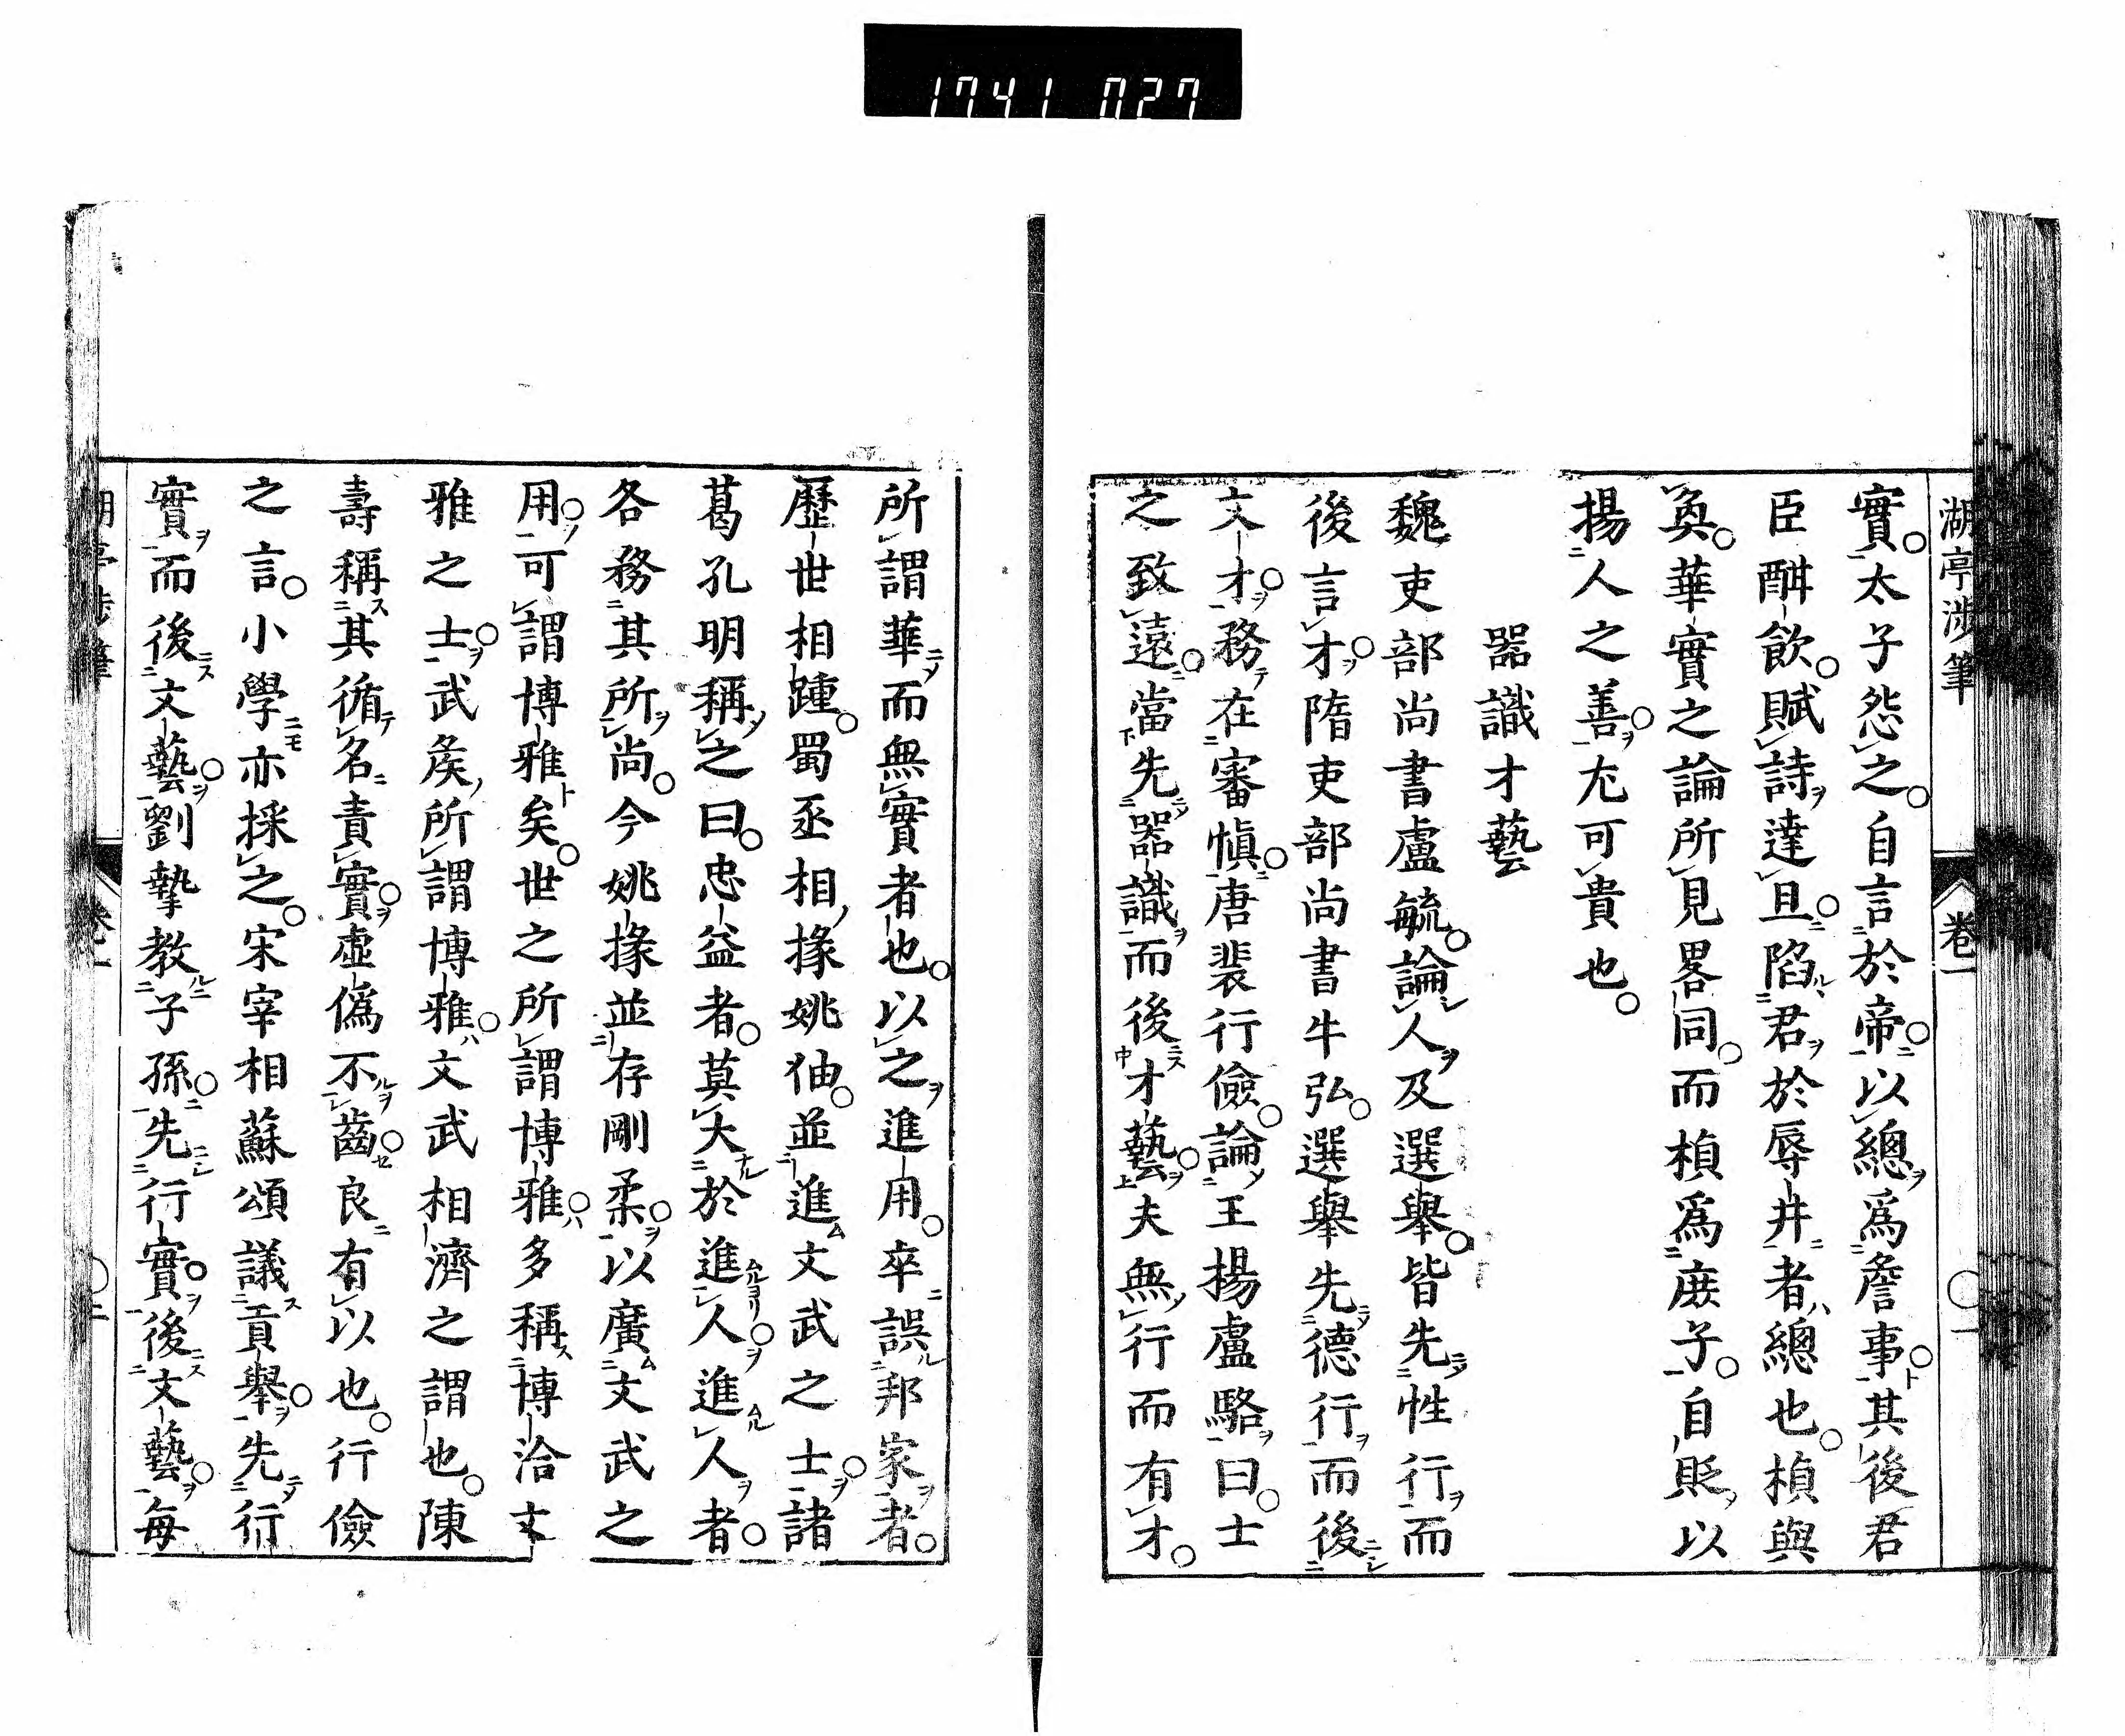 1741 027
湖亭渉筆
卷一
一
實。太子怨之。自言於帝。以總爲詹事。其後君
臣酣飲。賦詩達旦。陷君於辱井者總也。楨與
奐。華實之論所見畧同。而楨爲庶子。自貶以
揚人之善。尤可貴也。
器識才藝
魏吏部尚書盧毓。論人及選舉。皆先性行而
後言才。隋吏部尚書牛弘。選舉先德行而後
文才。務在審愼。唐裴行儉。論王揚盧駱曰。士
之致遠。當先器識而後才藝。夫無行而有才。
所謂華而無實者也。以之進用。卒誤邦家者。
歷世相踵。蜀丞相掾姚伷。並進文武之士。諸
葛孔明稱之曰。忠益者。莫大於進人。進人者。
各務其所尚。今姚掾並存剛柔。以廣文武之
用。可謂博雅矣。世之所謂博雅。多稱博洽文
雅之士。武矦所謂博雅。文武相濟之謂也。陳
壽稱其循名責實。虛僞不齒。良有以也。行儉
之言。小學亦採之。宋宰相蘇頌議貢舉。先行
實而後文藝。劉摯教子孫。先行實。後文藝。每
湖亭渉筆
卷一
二